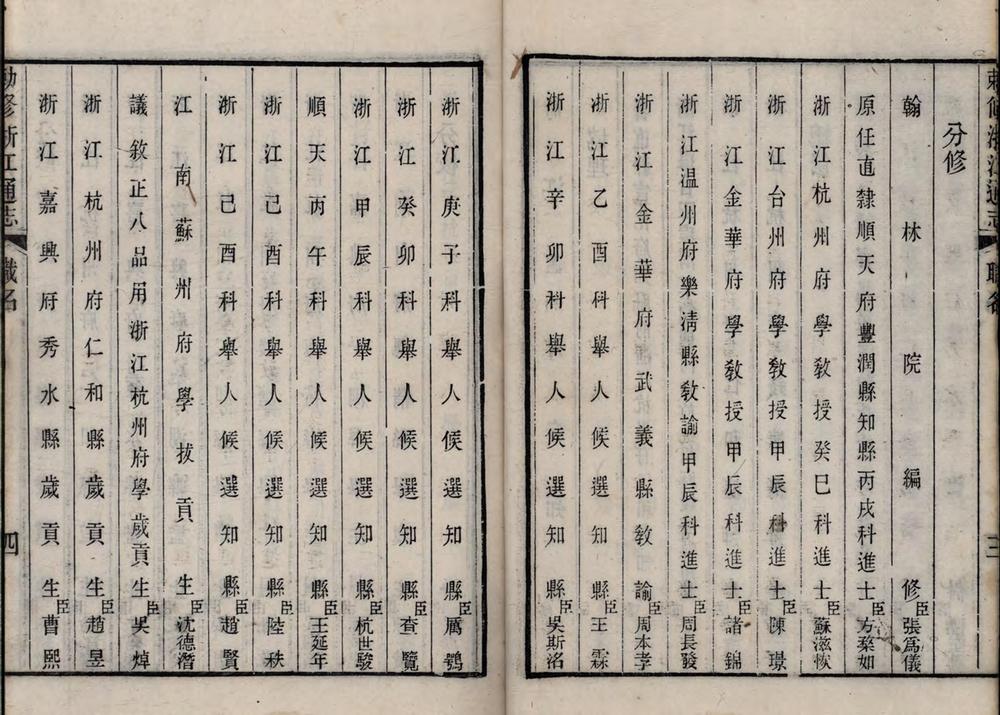 敕修浙江通志 職名 三
分修
翰林院編修臣張爲儀
原任直隸順天府豐潤縣知縣丙戌科進士臣方棻如
浙江杭州府學教授癸巳科進士臣蘇滋恢
浙江台州府學教授甲辰科進士臣陳璟
浙江金華府學教授甲辰科進士臣諸錦
浙江温州府樂清縣教諭甲辰科進士臣周長發
浙江金華府武義縣教諭臣周本孝
浙江乙酉科舉人候選知縣臣王霖
浙江辛卯科舉人候選知縣臣吳斯洺
浙江庚子科舉人候選知縣臣厲鶚
浙江癸卯科舉人候選知縣臣查覽
浙江甲辰科舉人候選知縣臣杭世駿
順天丙午科舉人候選知縣臣王延年
浙江己酉科舉人候選知縣臣陸秩
浙江己酉科舉人候選知縣臣趙賢
江南蘇州府學拔貢生臣沈德潛
議敘正八品用浙江杭州府學歲貢生臣吳焯
浙江杭州府仁和縣歲貢生臣趙昱
浙江嘉興府秀水縣歲貢生臣曹熙
敕修浙江通志 職名 四